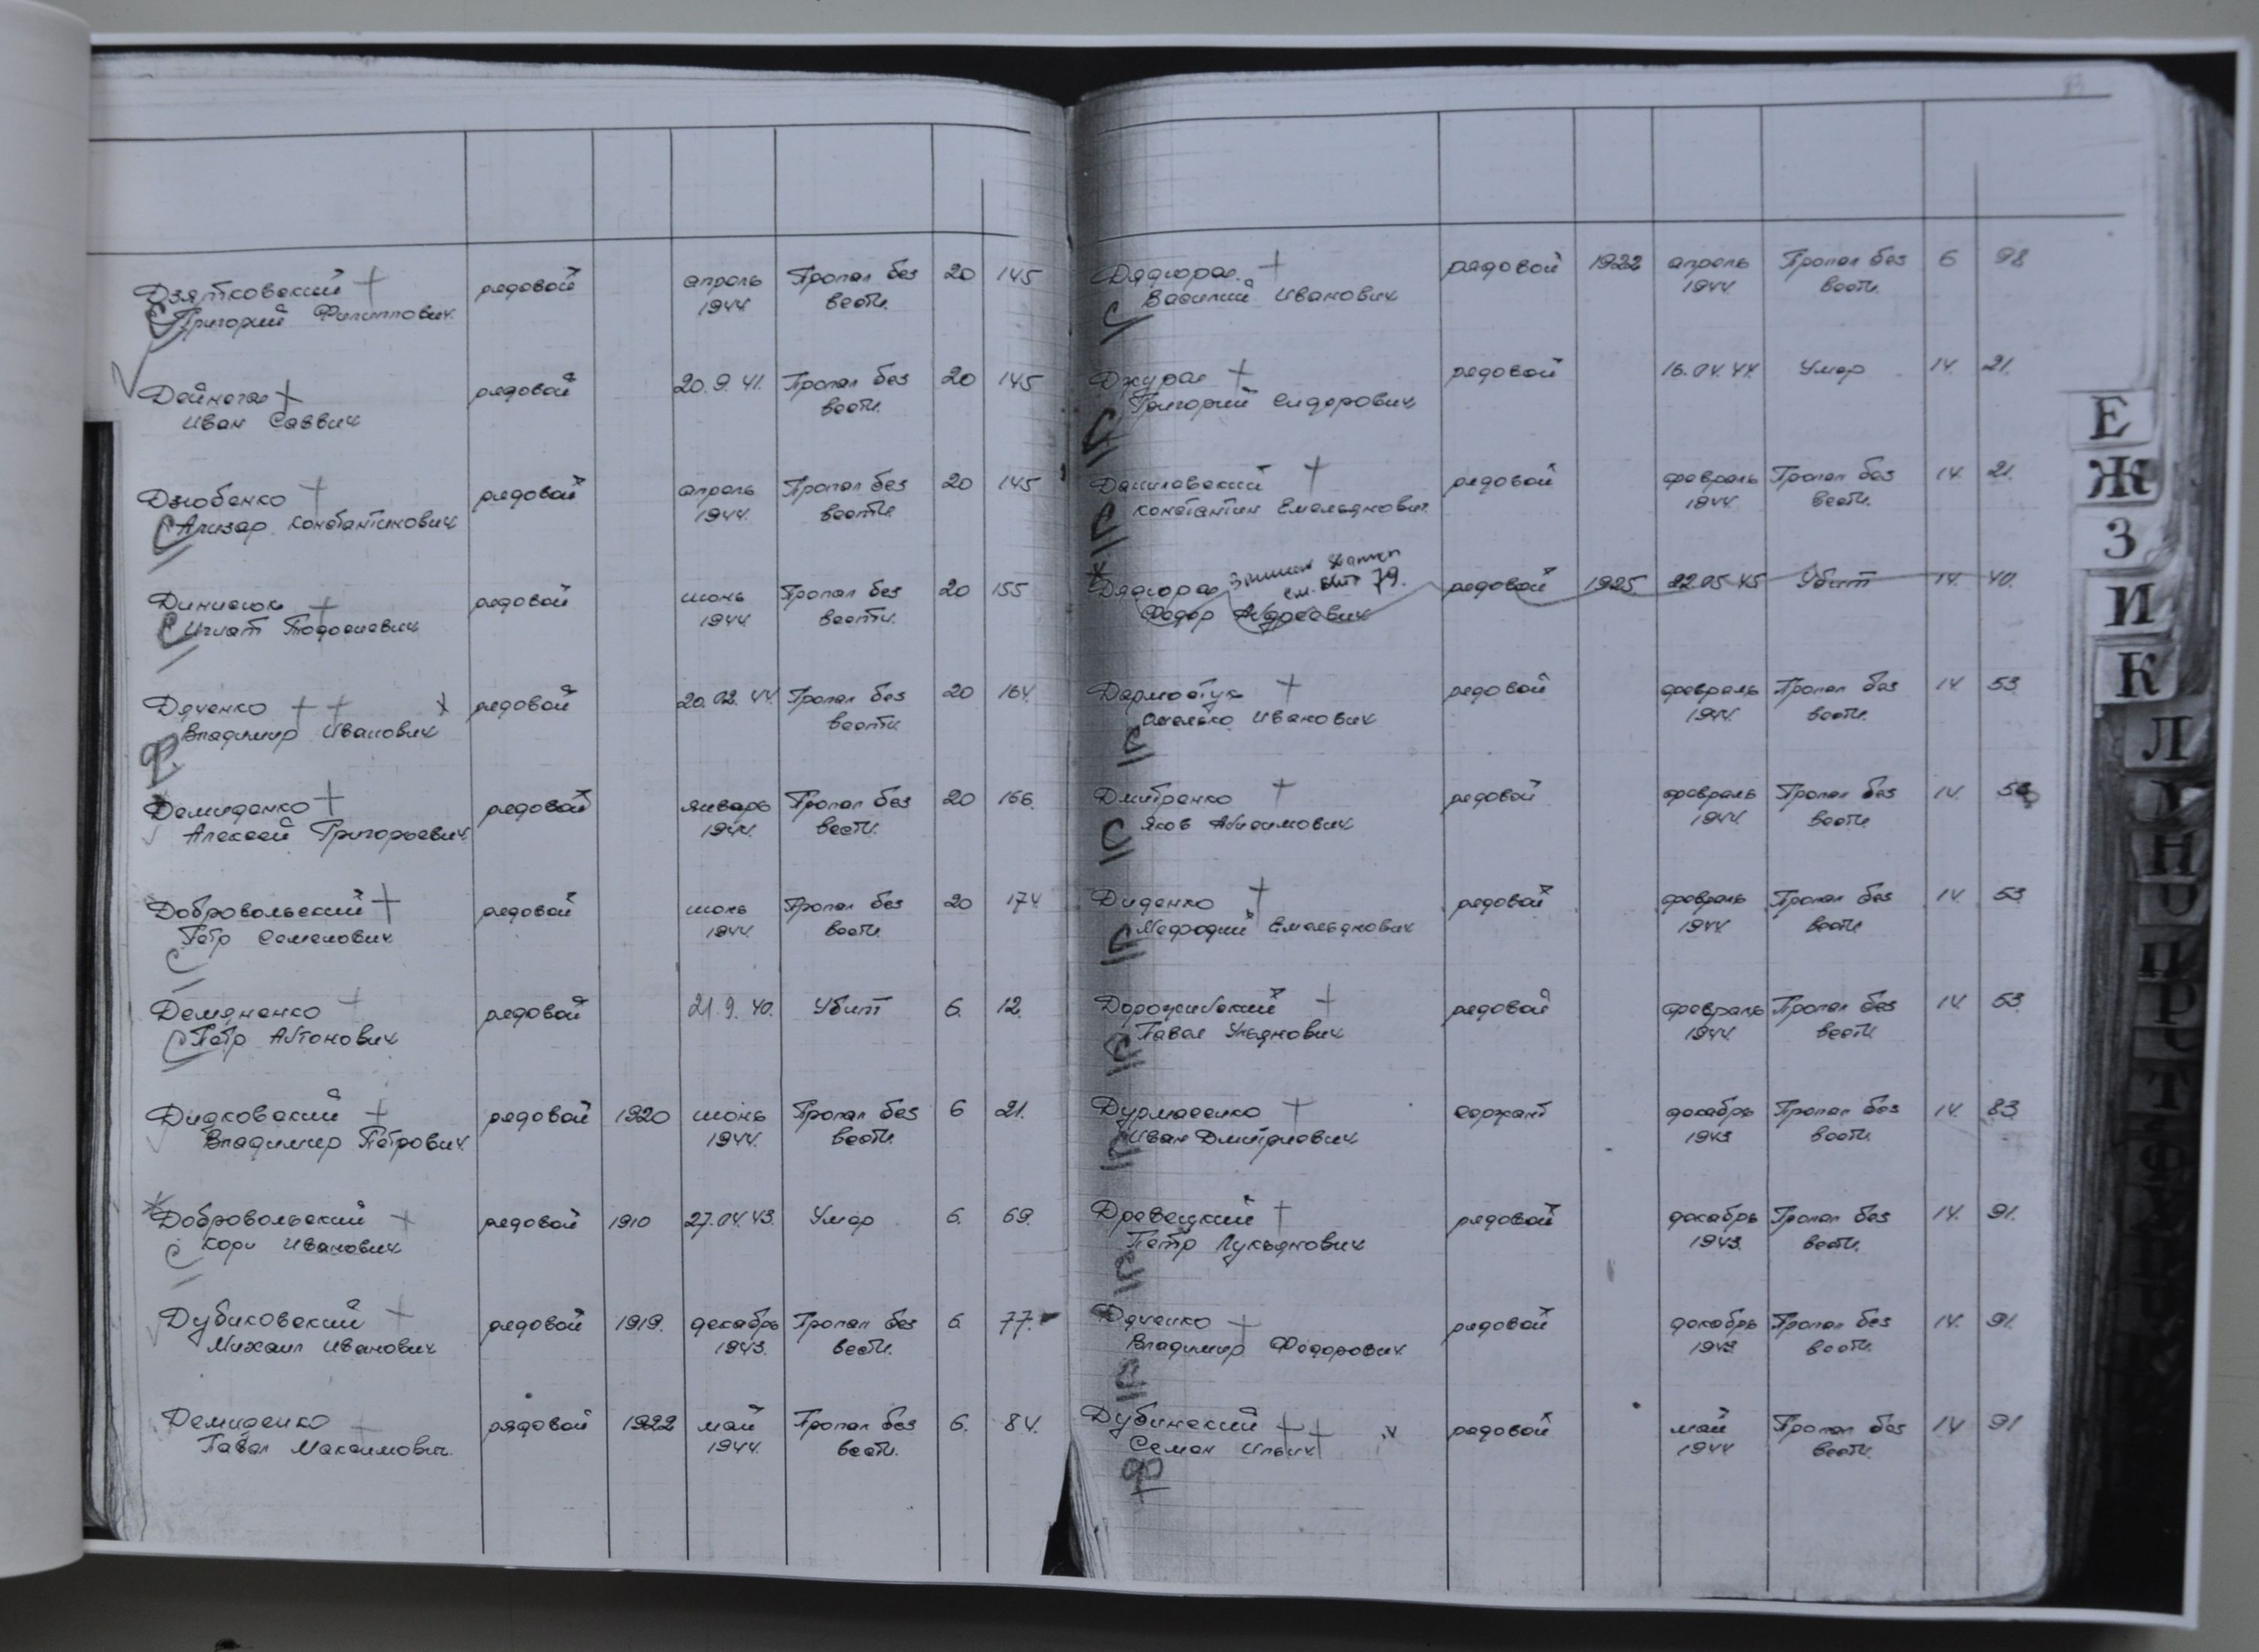 Дзятковский рядовой апрель Пропал без 20 145
Григорий Филиппович 1944 вести.
Дейнега рядовой 20.9.41. Пропал без 20 145
Иван Саввич вести.
Дзюбенко рядовой апрель Пропал без 20 145
Ализар Константинович 1944. вести.
Динисюк рядовой июнь Пропал без 20 155
Игнат Тодосиевич 1944 вести.
Дяченко рядовой 20.02.44. Пропал без 20 164.
Владимир Иванович вести.
Демиденко рядовой январь Пропал без 20 166.
Алексей Григорьевич 1944. вести.
Добровольский рядовой июнь Пропал без 20 174
Петр Семенович 1944. вести
Демяненко рядовой 21.9.40. Убит 6. 12.
Петр Антонович
Дидковский рядовой 1920 июнь Пропал без 6 21.
Владимир Петрович 1944. вести.
Добровольский рядовой 1910 27.04.43. Умер 6. 69.
Иванович
Дубиковский рядовой 1919. декабрь Пропал без 6. 77.
Михаил Иванович 1943. вести.
Демиденко рядовой 1922 май Пропал без 6. 84.
Павел Максимович. 1944. вести.
Дядюра рядовой 1922 апрель Пропал без 6 98
Василий Иванович 1944. вести.
Джура рядовой 16.04.44. Умер 14. 21.
Григорий Сидорович
Даниловский рядовой февраль Пропал без 14. 21.
Константин Емельянович 1944. вести.
см. 79.
Дядюра рядовой 1925 22.05.45 Убит 14. 40.
Федор Андреевич
Дармостук рядовой февраль Пропал без 14 53
Омелько Иванович 1944. вести.
Дмитренко рядовой февраль Пропал без 14.
Яков 1944. вести
Диденко рядовой февраль Пропал без 14. 53
Мефодий Емельянович 1944 вести
рядовой февраль Пропал без 14 53.
Павел Ульянович 1944. вести
Дурмасенко сержант декабрь Пропал без 14. 83
Иван Дмитриевич 1943 вести.
Древецкий рядовой декабрь Пропал без 14. 91.
Петр Лукьянович 1943. вести.
Дяченко рядовой декабрь Пропал без 14. 91.
Владимир Федорович 1943 вести.
Дубинский рядовой май Пропал без 14 91
Семен Ильич 1944 вести.
Е
Ж
З
И
К
Л
Н
О
П
Р
Т